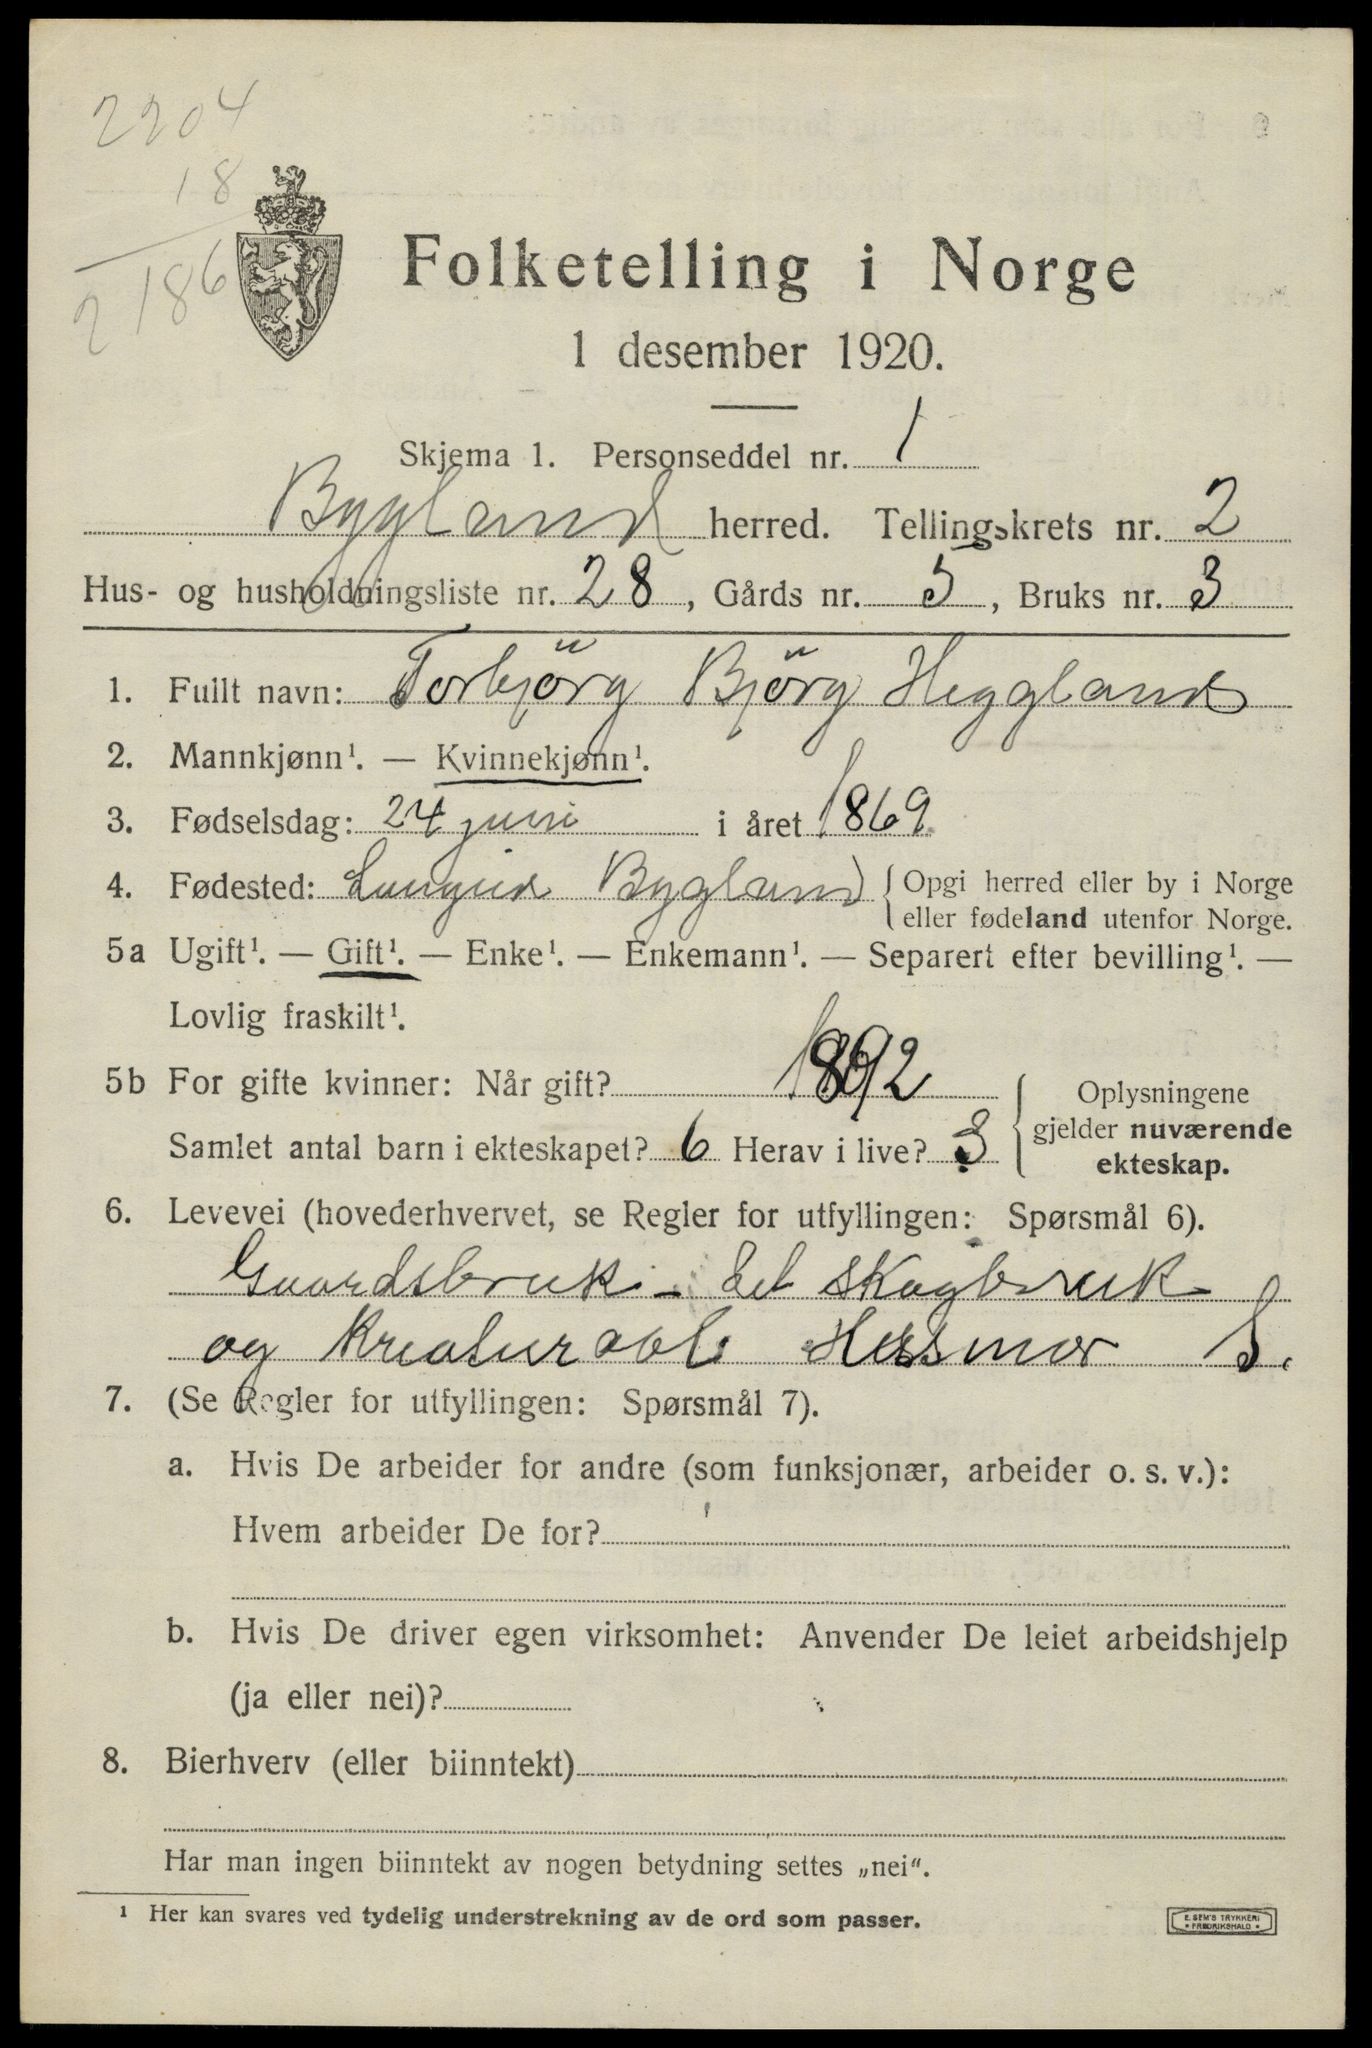 2204
18
2186
Folketelling i Norge
1 desember 1920.
Skjema 1. Personseddel nr. 1
Bygland herred. Tellingskrets nr. 2
Hus- og husholdningsliste nr. 28, Gårds nr. 5, Bruks nr. 3
1. Fullt navn: Torbjörg Björg Heggland
2. Mannkjønn¹. — Kvinnekjønn¹.
3. Fødselsdag: 24 juni i året 1869
4. Fødested: Bygland { Opgi herred eller by i Norge
eller fødeland utenfor Norge.
5a Ugift¹. — Gift¹. — Enke¹. — Enkemann¹. — Separert efter bevilling¹. —
Lovlig fraskilt¹.
5b For gifte kvinner: Når gift? 1892
Samlet antal barn i ekteskapet? 6 Herav i live? 3
Oplysningene
gjelder nuværende
ekteskap.
6. Levevei (hovederhvervet, se Regler for utfyllingen: Spørsmål 6).
Gaardsbruk - Skogbruk
og Kreaturavl Husmor S.
7. (Se Regler for utfyllingen: Spørsmål 7).
a. Hvis De arbeider for andre (som funksjonær, arbeider o. s. v.):
Hvem arbeider De for?
b. Hvis De driver egen virksomhet: Anvender De leiet arbeidshjelp
(ja eller nei)?
8. Bierhverv (eller biinntekt)
Har man ingen biinntekt av nogen betydning settes „nei“.
¹ Her kan svares ved tydelig understrekning av de ord som passer.
E. SEM'S TRYKKERI
FREDRIKSHALD